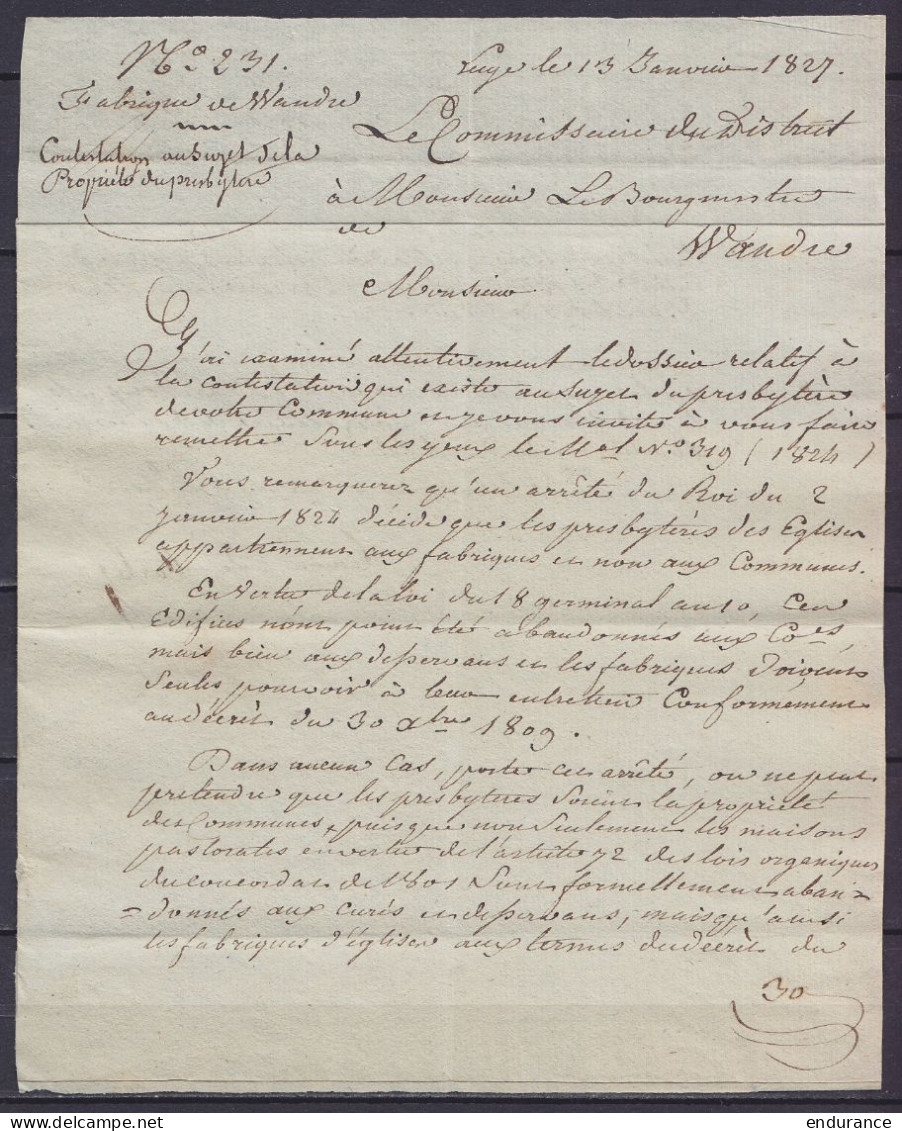 N.o 231.
Liege le 13 Janvier 1827.
Fabrique de Wandre
Le Commissaire du District
Contestation au Sujet de la
Propriété du presbytere
à Monsieur Le Bourgmestre
de
Wandre
Monsieur
J'ai examiné attentivement le dossier relatif à
la contestation qui existe au Sujet du presbytère
de votre Commune et je vous invite à vous faire
remettre Sous les yeux le M.al N.o 319 ( 1824 )
Vous remarquerez qu'un arrêté du Roi du 2
Janvier 1824 décide que les presbytères des Eglises
appartiennent aux fabriques et non aux Communes.
En Vertu de la Loi du 18 germinal an 10, Ces
Edifices n'ont point été abandonnés aux Co.es,
mais bien aux desservans et les fabriques doivent
Seules pourvoir à leur entretien Conformément
au décret du 30 Xbre 1809.
Dans aucun Cas, porte cet arrêté, on ne peut
pretendre que les presbyteres Soient la propriété
des Communes, puisque non Seulement les maisons
pastorales en vertu de l'article 72 des lois organiques
du concordat de 1801 Sont formellement aban=
=donnés aux curés et desservans, mais qu'ainsi
les fabriques d'églises aux termes du décret du
30
endurance